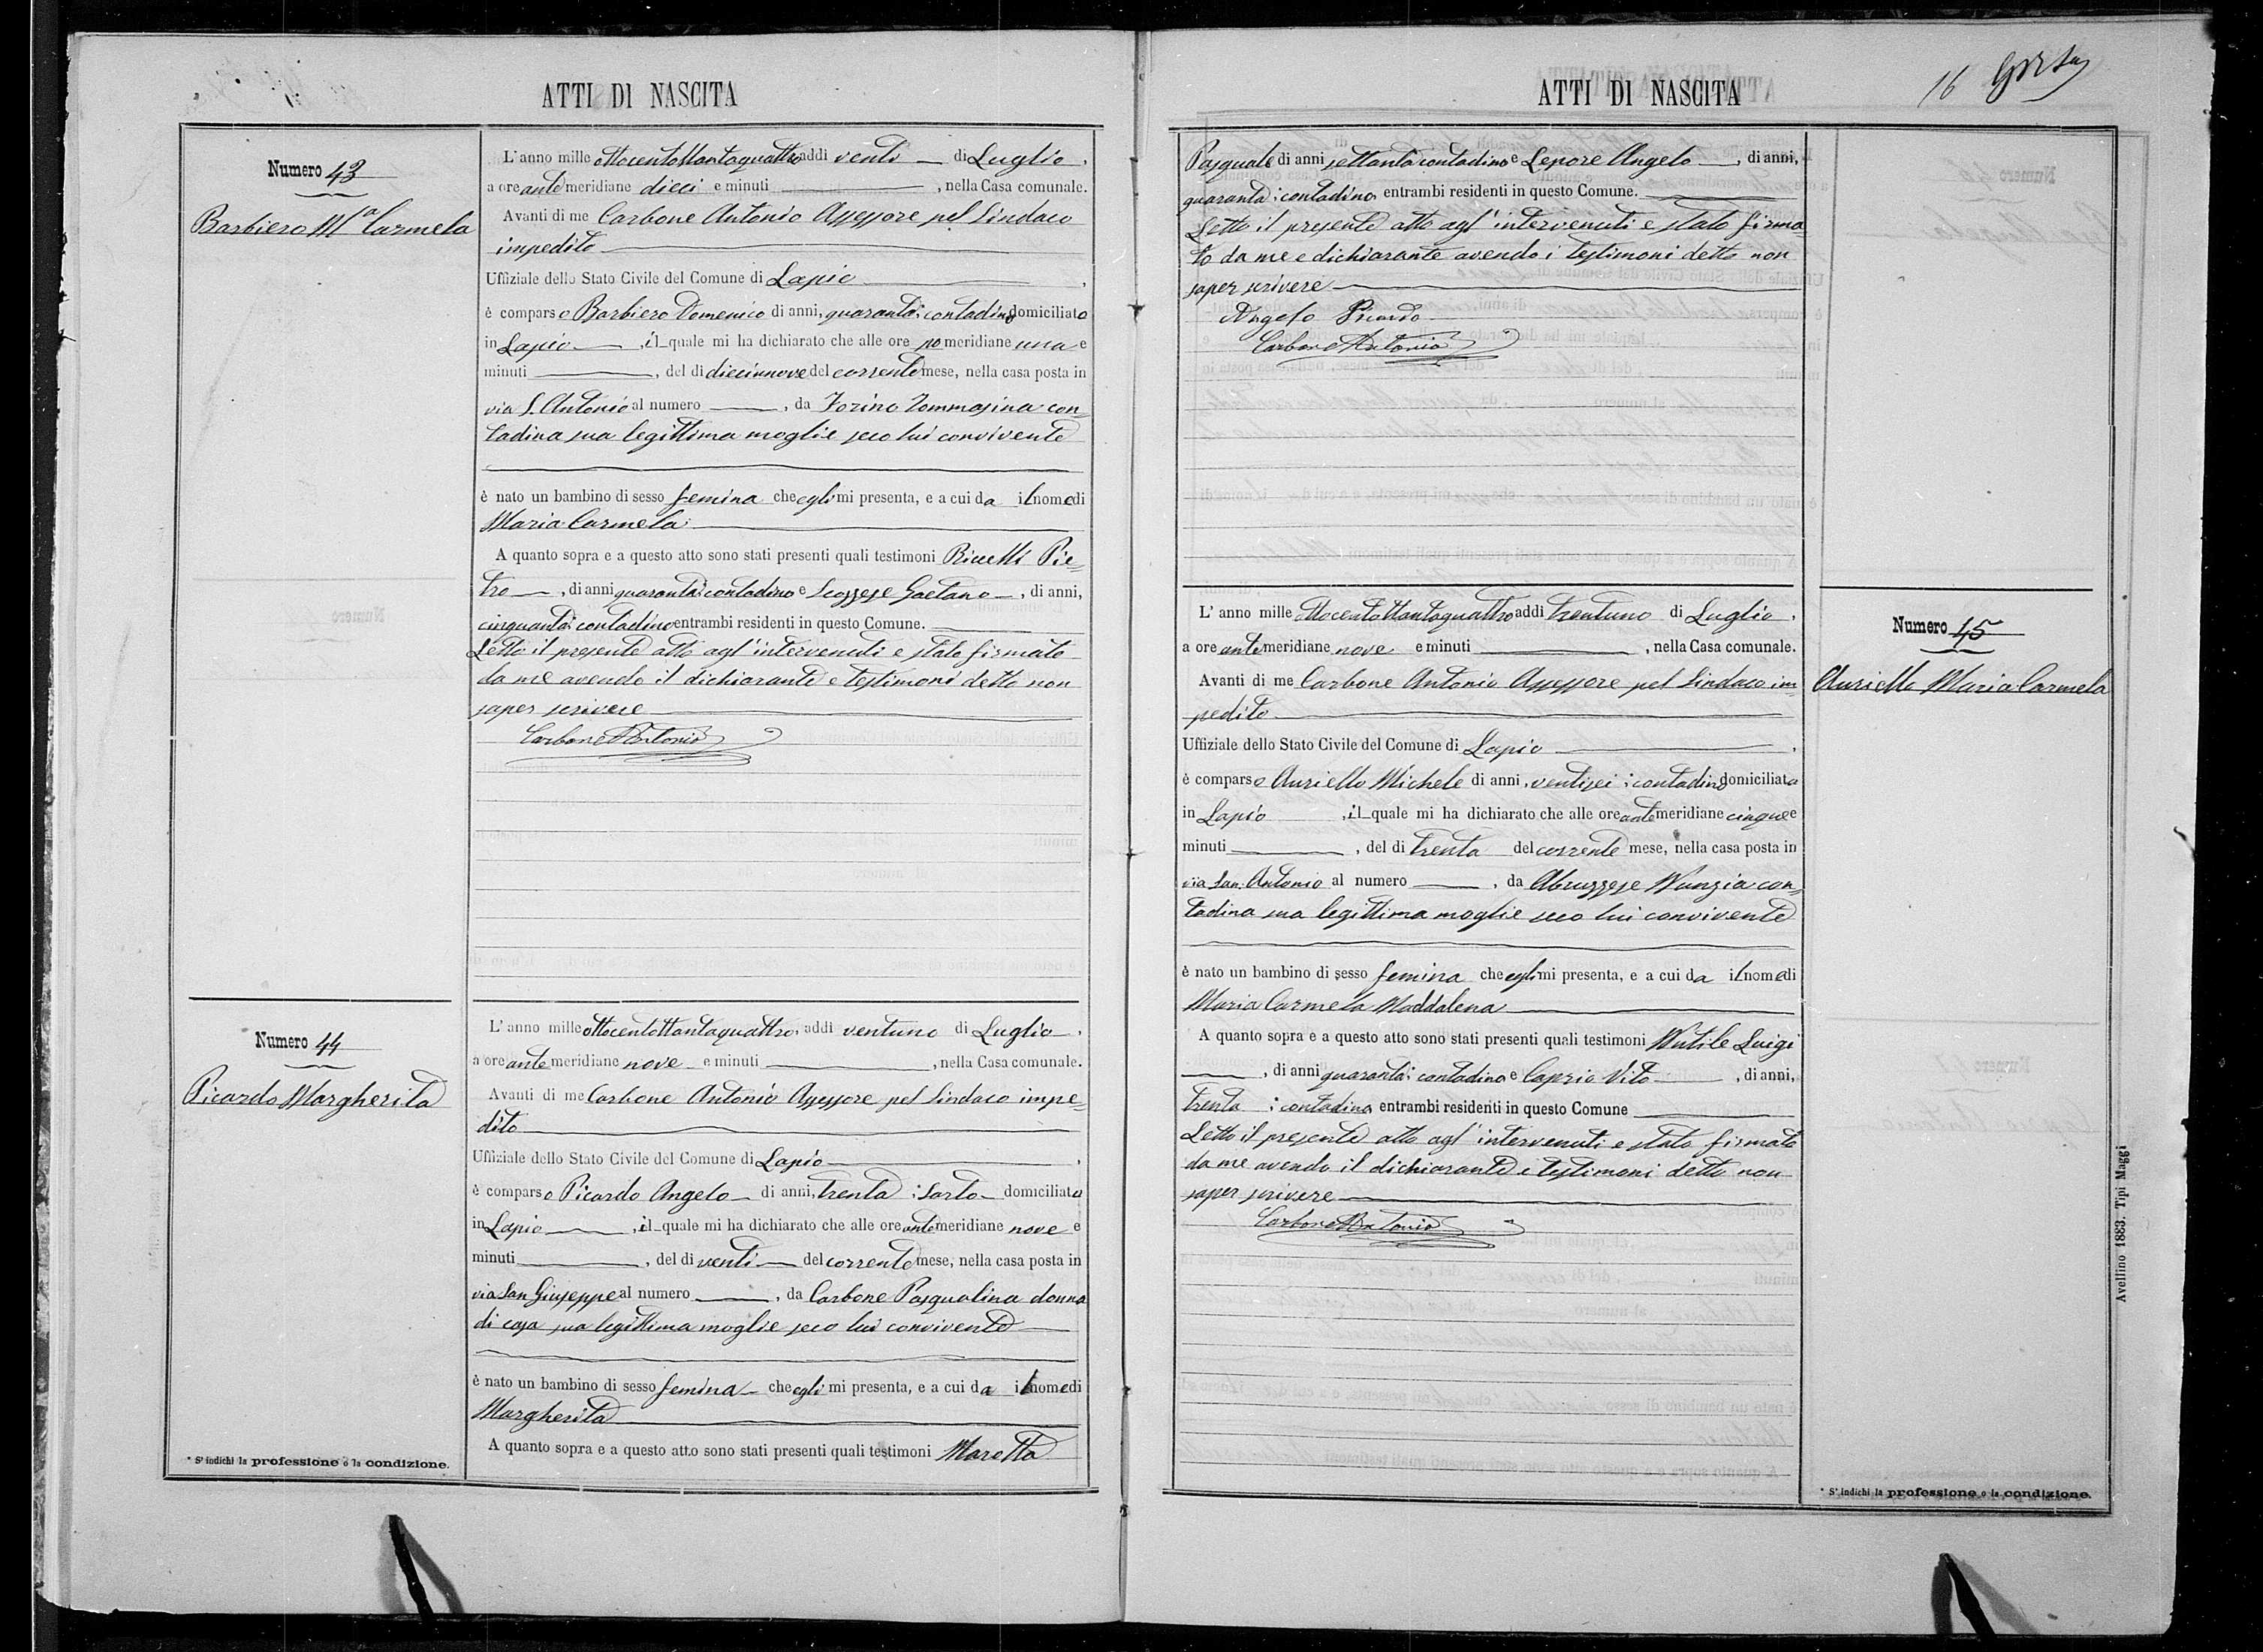 ATTI DI NASCITA
Numero 43
Barbiero M.a Carmela
L'anno mille ottocentottantaquattro addi venti di Luglio,
a ore antemeridiane dieci e minuti , nella Casa comunale.
Avanti di me Carbone Antonio Assessore pel Sindaco
impedito
Uffiziale dello Stato Civile del Comune di Lapio ,
è comparso Barbiero Domenico di anni, quaranta; contadino domiciliato
in Lapio , il quale mi ha dichiarato che alle ore pomeridiane una e
minuti , del di diecinnove del corrente mese, nella casa posta in
via S. Antonio al numero , da Forino Tommasina con=
tadina sua legittima moglie seco lui convivente
è nato un bambino di sesso femina che egli mi presenta, e a cui da il nome di
Maria Carmela:
A quanto sopra e a questo atto sono stati presenti quali testimoni Pie=
tro , di anni quaranta: contadino e Scozzese Gaetano , di anni,
cinquanta: contadino entrambi residenti in questo Comune.
Letto il presente atto agl'intervenuti e stato firmato
da me avendo il dichiarante e testimoni detto non
saper scrivere
Carbone Antonio
Numero 44
Picardo Margherita
L'anno mille ottocentottantaquattro, addi ventuno di Luglio,
a ore antemeridiane nove e minuti , nella Casa comunale.
Avanti di me Carbone Antonio Assessore pel Sindaco impe=
dito
Uffiziale dello Stato Civile del Comune di Lapio ,
è comparso Picardo Angelo di anni, trenta; Sarto domiciliato
in Lapio , il quale mi ha dichiarato che alle ore antemeridiane nove e
minuti , del di venti del corrente mese, nella casa posta in
via San Giuseppe al numero , da Carbone Pasqualina donna
di casa sua legittima moglie seco lui convivente
è nato un bambino di sesso femina che egli mi presenta, e a cui da il nome di
Margherita
A quanto sopra e a questo atto sono stati presenti quali testimoni Maretta
* S'indichi la professione o la condizione.
ATTI DI NASCITA
16
Pasquale di anni settanta contadino e Lepore Angelo , di anni,
quaranta; contadino, entrambi residenti in questo Comune.
Letto il presente atto agl'intervenuti e stato firma=
to da me e dichiarante avendo i testimoni detto non
saper scrivere
Angelo Picardo
Carbone Antonio
Numero 45
Auriello Maria Carmela
L'anno mille ottocentottantaquattro addi trentuno di Luglio,
a ore antemeridiane nove e minuti , nella Casa comunale.
Avanti di me Carbone Antonio Assessore pel Sindaco im=
pedito
Uffiziale dello Stato Civile del Comune di Lapio ,
è comparso Auriello Michele di anni, ventisei; contadino domiciliato
in Lapio , il quale mi ha dichiarato che alle ore antemeridiane cinque e
minuti , del di trenta del corrente mese, nella casa posta in
via San Antonio al numero , da Abruzzese Nunzia con=
tadina sua legittima moglie seco lui convivente
è nato un bambino di sesso femina che egli mi presenta, e a cui da il nome di
Maria Carmela Maddalena
A quanto sopra e a questo atto sono stati presenti quali testimoni Nutile Luigi
, di anni quaranta; contadino e Caprio Vito , di anni,
trenta ; contadino, entrambi residenti in questo Comune
Letto il presente atto agl'intervenuti e stato firmato
da me avendo il dichiarante e testimoni detto non
saper scrivere
Carbone Antonio
* S'indichi la professione o la condizione.
Avellino 1883. Tipi Maggi